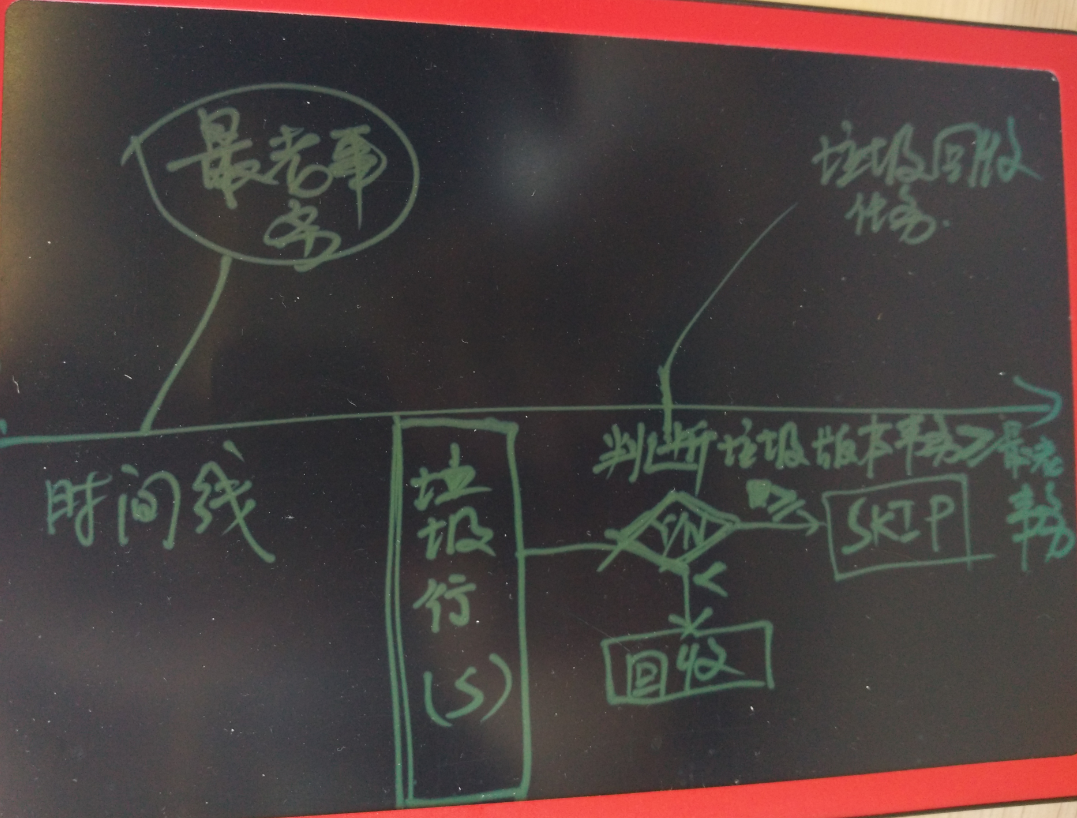 最老事
务
垃圾回收
任务.
时间线
垃
圾
行
(S)
判断垃圾版本事务≥最老
事务
Y/N
≥
SKIP
<
回收